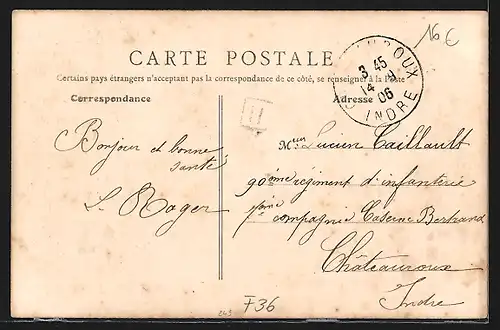 16€
CARTE POSTALE
Certains pays étrangers n'acceptant pas la correspondance de ce côté, se renseigner à la Poste
Correspondance
Adresse
CHATEAUROUX
3 45
14
06
INDRE
Bonjour et bonne
santé
L. Roger
Lucien Caillault
90ème régiment d'infanterie
compagnie Caserne Bertrand
Châteauroux
Indre
F36